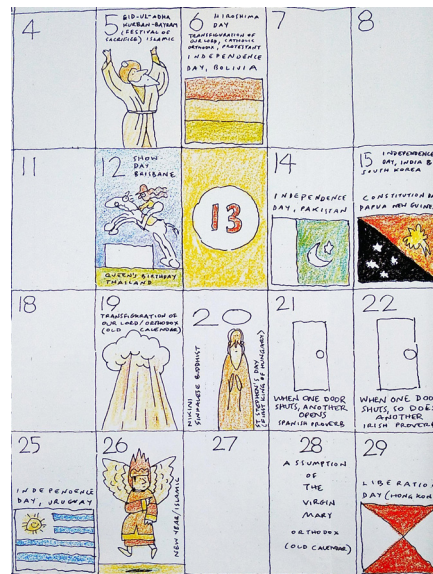 4
5
EID-UL-ADHA
KURBAN-BAYRAM
(FESTIVAL OF
SACRIFICE) ISLAMIC
6
HIROSHIMA
DAY
TRANSFIGURATION OF
OUR LORD, CATHOLIC
ORTHODOX, PROTESTANT
INDEPENDENCE
DAY, BOLIVIA
7
8
11
12
SHOW
DAY
BRISBANE
QUEEN'S BIRTHDAY
THAILAND
13
14
INDEPENDENCE
DAY, PAKISTAN
15
INDEPENDENCE
DAY, INDIA &
SOUTH KOREA
CONSTITUTION
PAPUA NEW GUINEA
18
19
TRANSFIGURATION OF
OUR LORD/ORTHODOX
(OLD CALENDAR)
20
NIKINI
SINHALESE BUDDHIST
ST STEPHEN'S DAY
(FIRST KING OF HUNGARY)
21
WHEN ONE DOOR
SHUTS, ANOTHER
OPENS
SPANISH PROVERB
22
WHEN ONE DOO
SHUTS, SO DOES
ANOTHER
IRISH PROVERB
25
INDEPENDENCE
DAY, URUGUAY
26
NEW YEAR/ISLAMIC
27
28
ASSUMPTION
OF
THE
VIRGIN
MARY
ORTHODOX
(OLD CALENDAR)
29
LIBERATION
DAY (HONG KONG